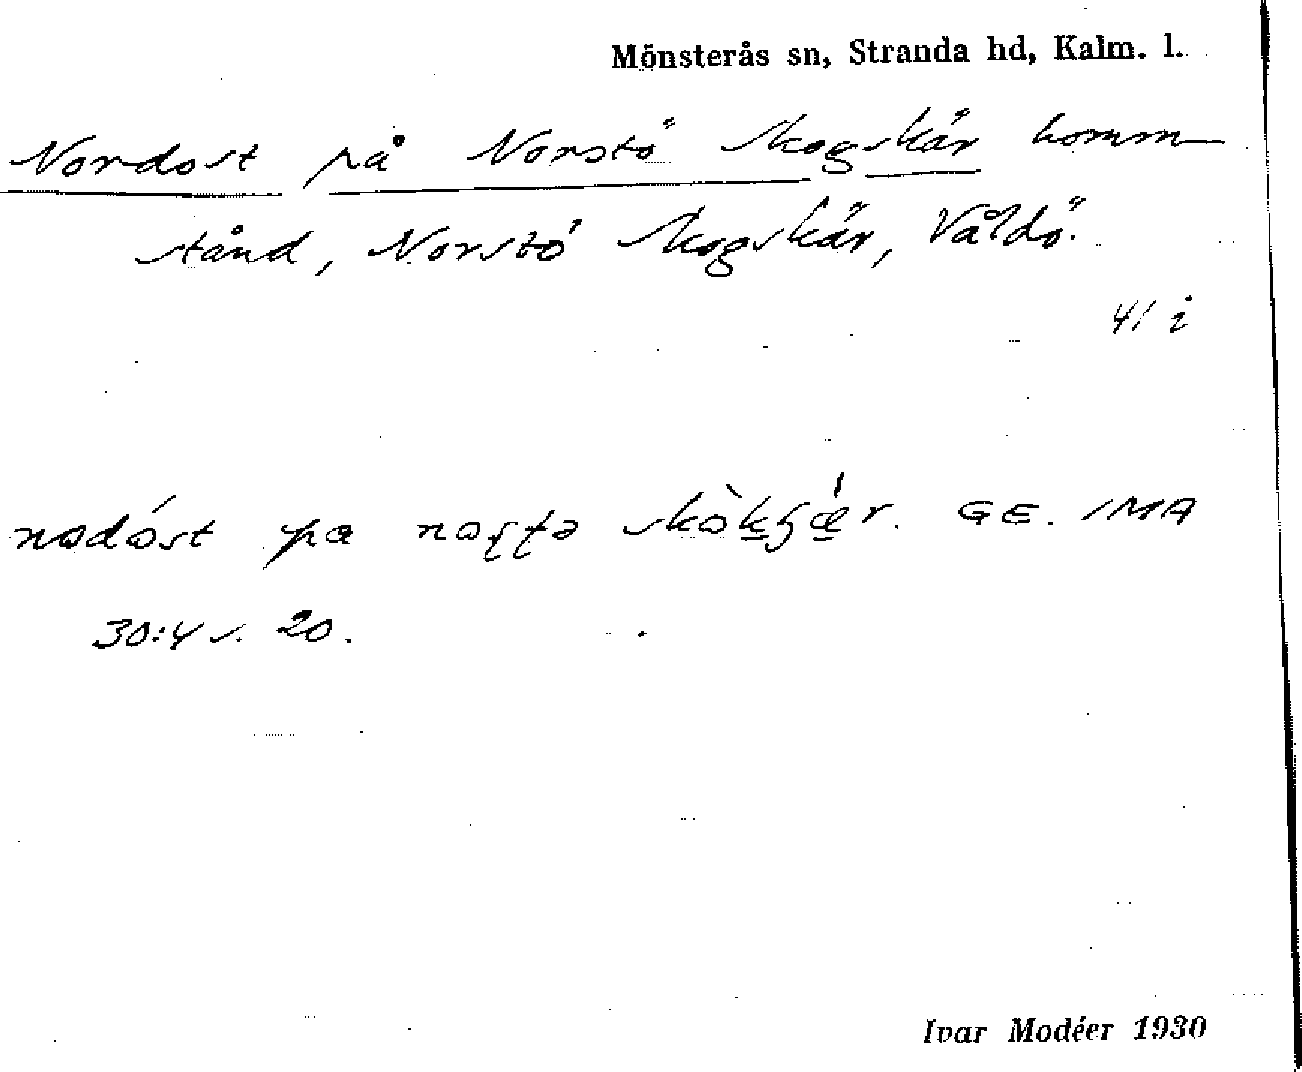 Mönsterås sn, Stranda hd, Kalm. l.
Nordost på Norstö Skogskär homm-
stånd, Norstö Skogskär, Våldö.
41 i
nodóst pa
skòkʂǽr. GE. IMA
30:4 s. 20.
Ivar Modéer 1930